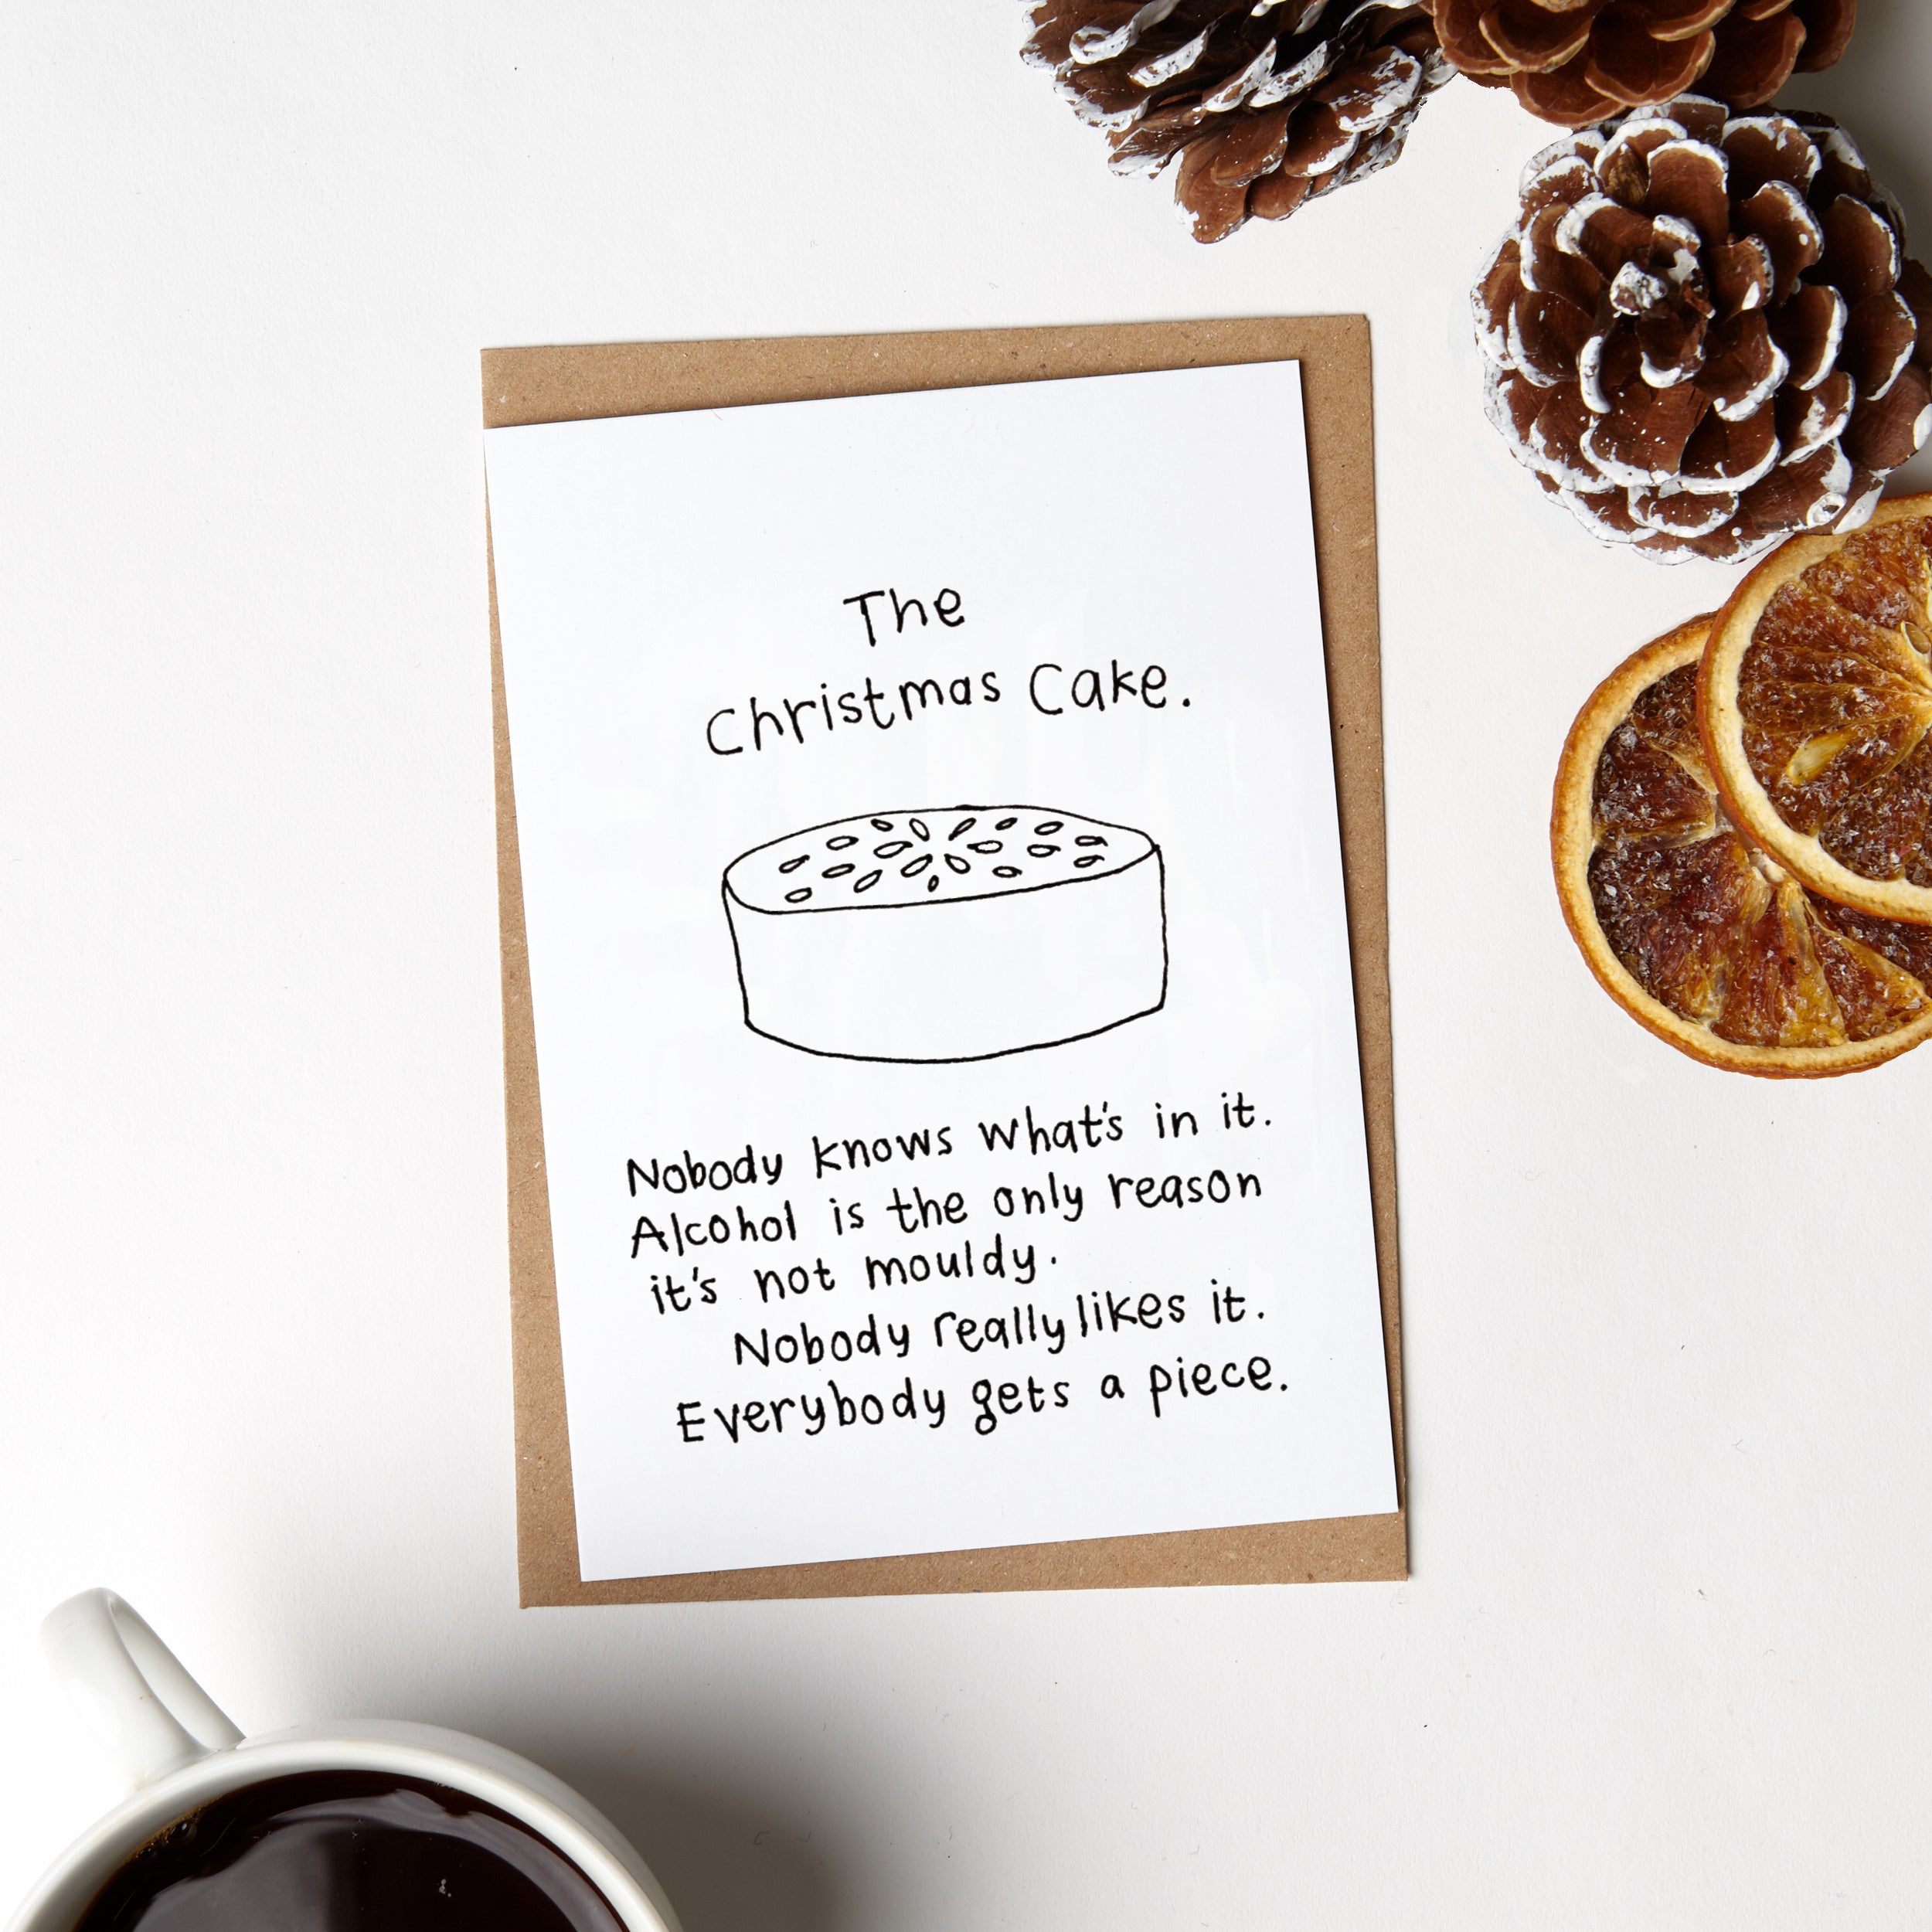 The
Christmas Cake.
Nobody knows what's in it.
Alcohol is the only reason
it's not mouldy.
Nobody really likes it.
Everybody gets a piece.